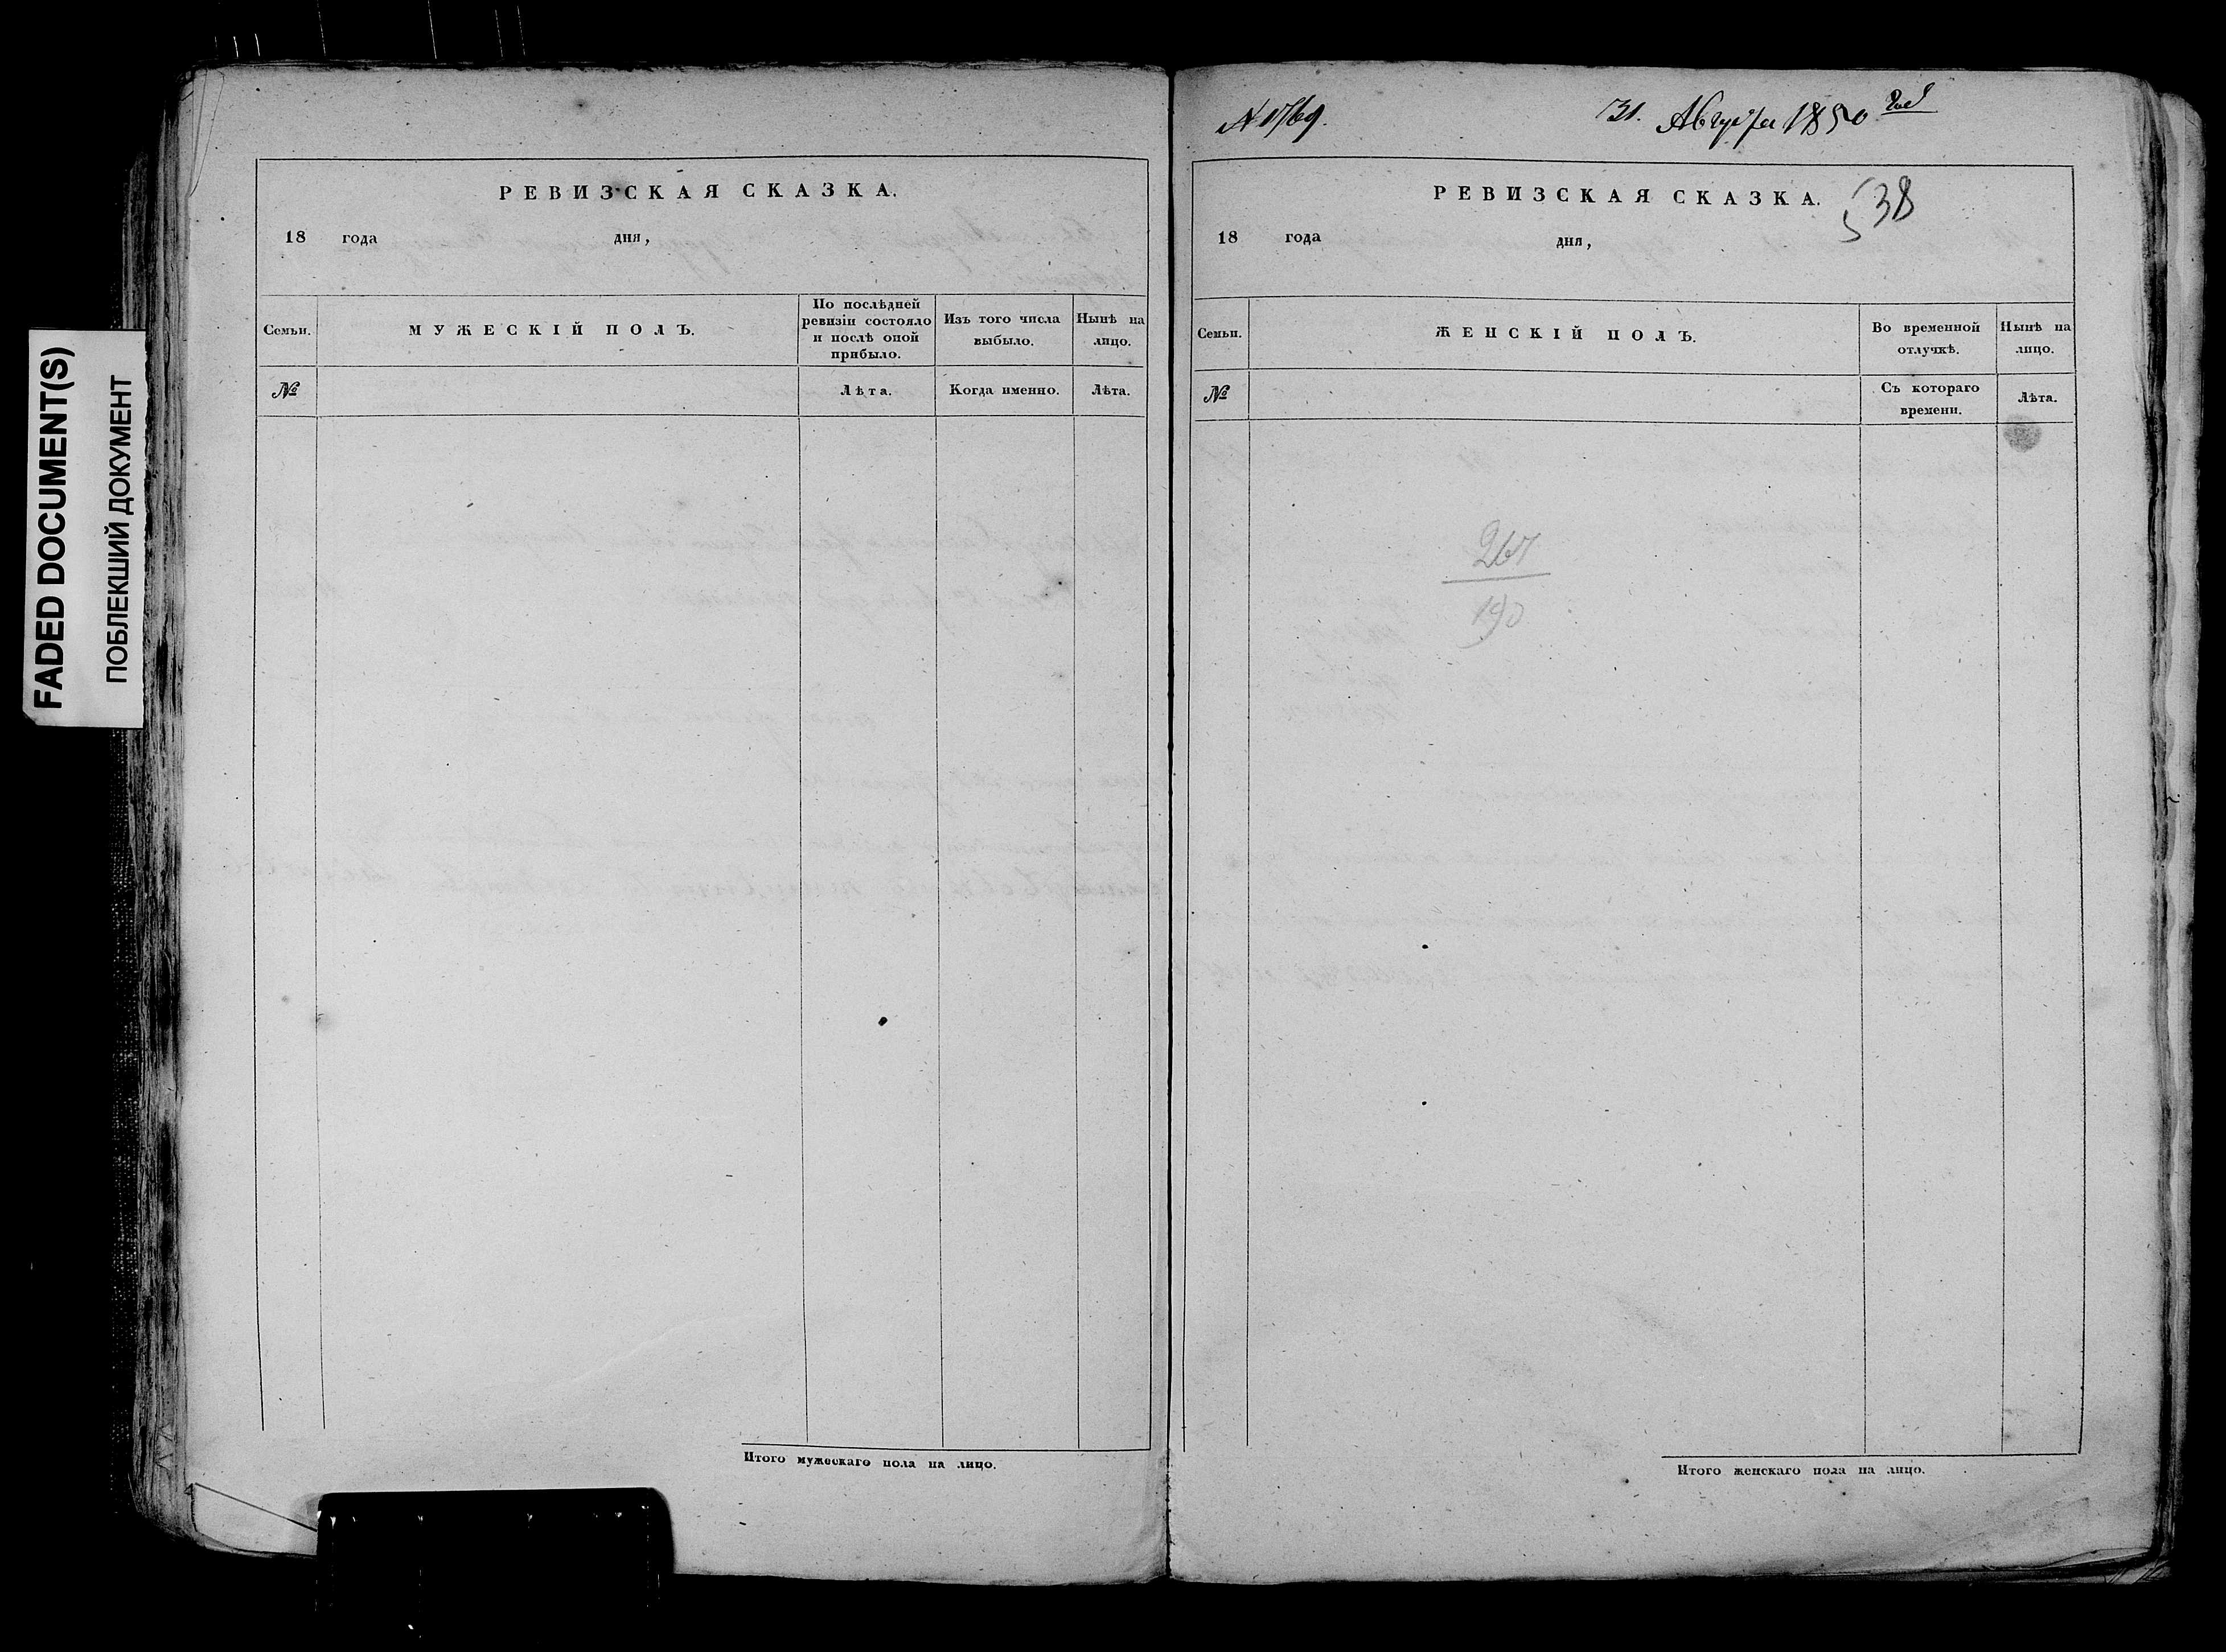 FADED DOCUMENT(S)
ПОБЛЕКШИЙ ДОКУМЕНТ
РЕВИЗСКАЯ СКАЗКА.
18 года дня,
Семьи.
МУЖЕСКІЙ ПОЛЪ.
По послѣдней
ревизіи состояло
и послѣ оной
прибыло.
Изъ того числа
выбыло.
Нынѣ на
лицо.
№
Лѣта.
Когда именно.
Лѣта.
Итого мужескаго пола на лицо.
31. Августа 1850 года
РЕВИЗСКАЯ СКАЗКА.
538
18 года дня,
Семьи.
ЖЕНСКІЙ ПОЛЪ.
Во временной
отлучкѣ.
Нынѣ на
лицо.
№
Съ котораго
времени.
Лѣта.
Итого женскаго пола на лицо.